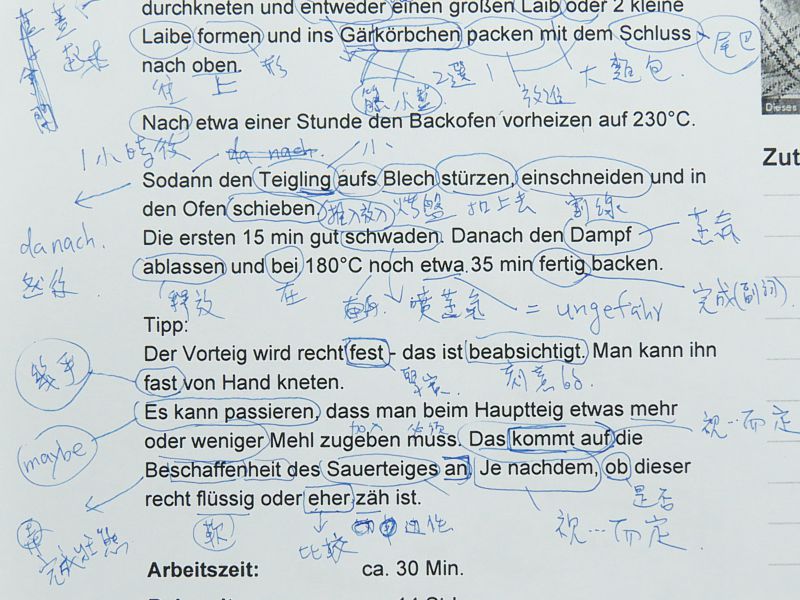 durchkneten und entweder einen großen Laib oder 2 kleine
Laibe formen und ins Gärkörbchen packen mit dem Schluss
尾巴
nach oben.
往 上 形
2選1
大麵包
小籃
放進
Nach etwa einer Stunde den Backofen vorheizen auf 230°C.
1小時後
da nach.
小
Dieses
Zut
Sodann den Teigling aufs Blech stürzen, einschneiden und in
den Ofen schieben.
推入放入 烤盤 扣上去 割線
da nach.
然後
Die ersten 15 min gut schwaden. Danach den Dampf
蒸氣
ablassen und bei 180°C noch etwa 35 min fertig backen.
釋放 在 噴蒸氣 = ungefähr 完成(副詞)
Tipp:
Der Vorteig wird recht fest - das ist beabsichtigt. Man kann ihn
堅實 刻意的.
幾乎
fast von Hand kneten.
Es kann passieren, dass man beim Hauptteig etwas mehr
maybe
加入
視…而定
oder weniger Mehl zugeben muss. Das kommt auf die
Beschaffenheit des Sauerteiges an. Je nachdem, ob dieser
是否
recht flüssig oder eher zäh ist.
完成狀態
軟
比較
視…而定.
Arbeitszeit: ca. 30 Min.